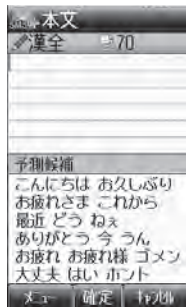 本文
漢全 70
予測候補
こんにちは お久しぶり
お疲れさま これから
最近 どう ねぇ
ありがとう 今 うん
お疲れ お疲れ様 ゴメン
大丈夫 はい ホント
メニュー 確定 キャンセル